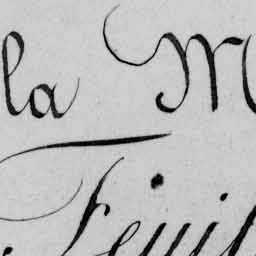 la M
Feuil